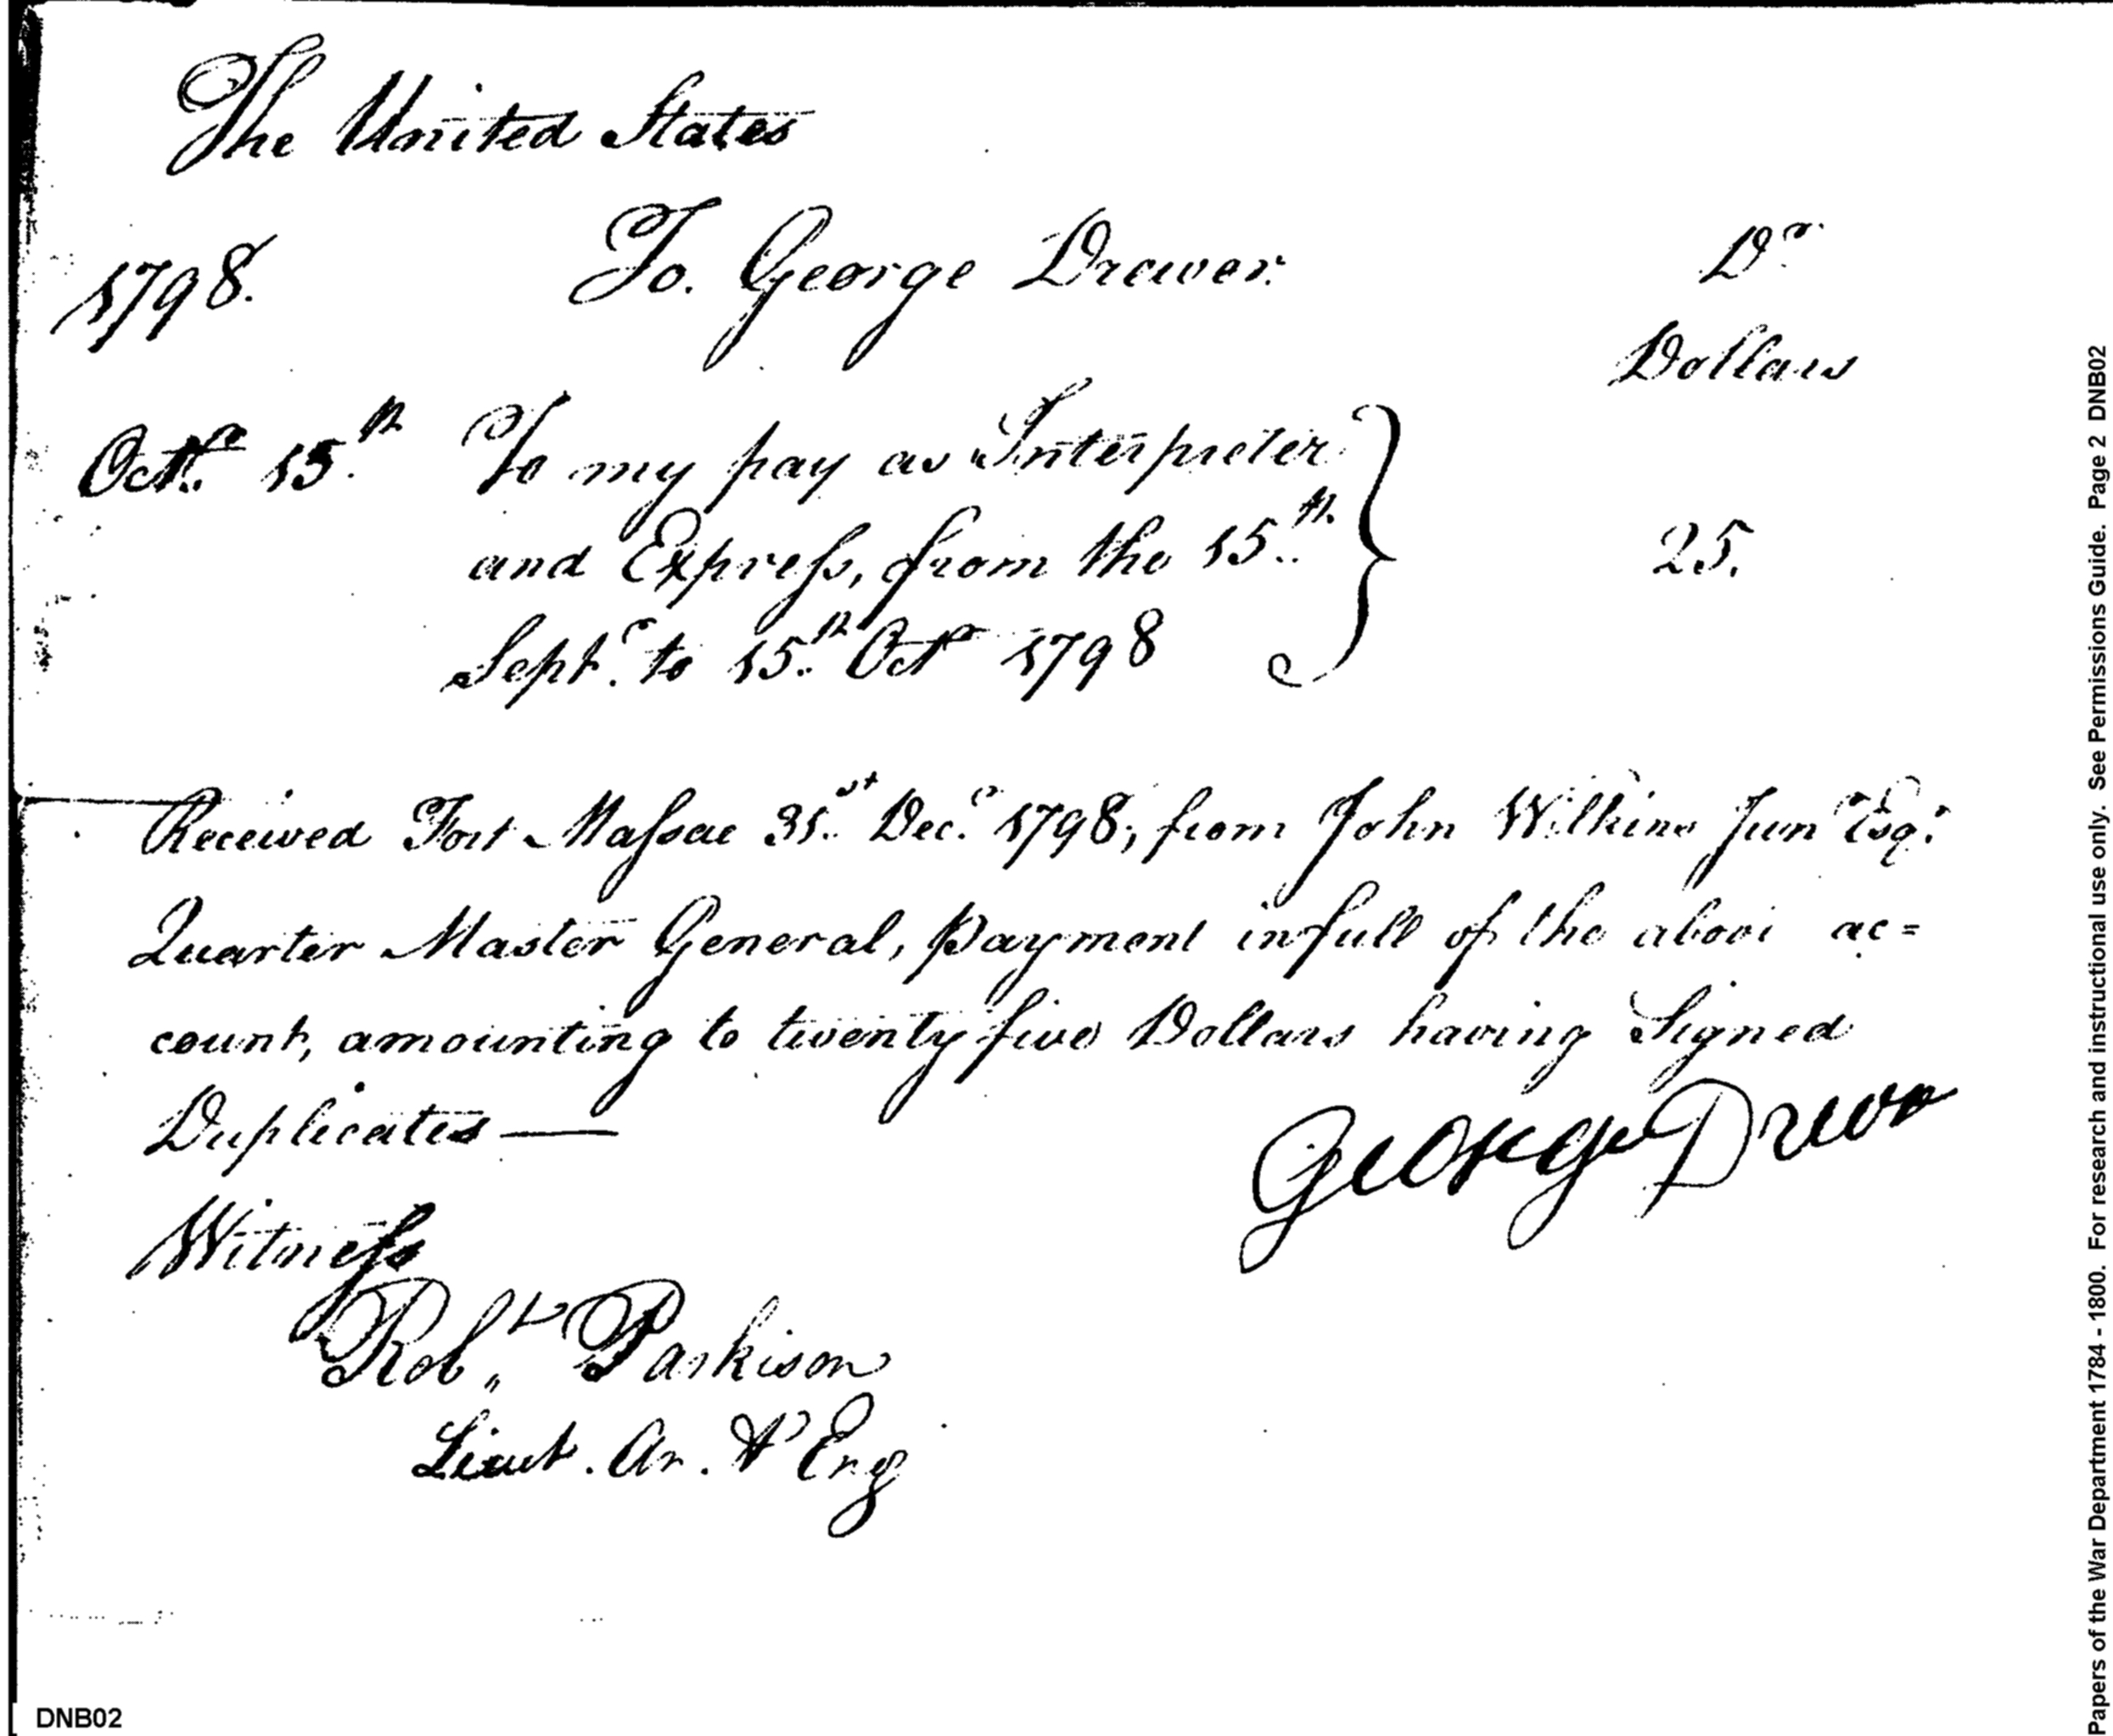 The United States
1798. To. George Drewer. Dr.
Dollars
Octr. 15.th To my pay as Interpreter
and Express, from the 15.th 25.
Septr. to 15.th Octr 1798
Received Fort Massac 31.st Decr. 1798, from John Wilkins Junr Esqr.
Quarter Master General, Payment in full of the above ac=
count, amounting to twenty five Dollars having Signed
Duplicates —
George Drewr
Witness
Robt Parkison
Lieut. Ar. & Eng
DNB02
Papers of the War Department 1784 - 1800. For research and instructional use only. See Permissions Guide. Page 2 DNB02